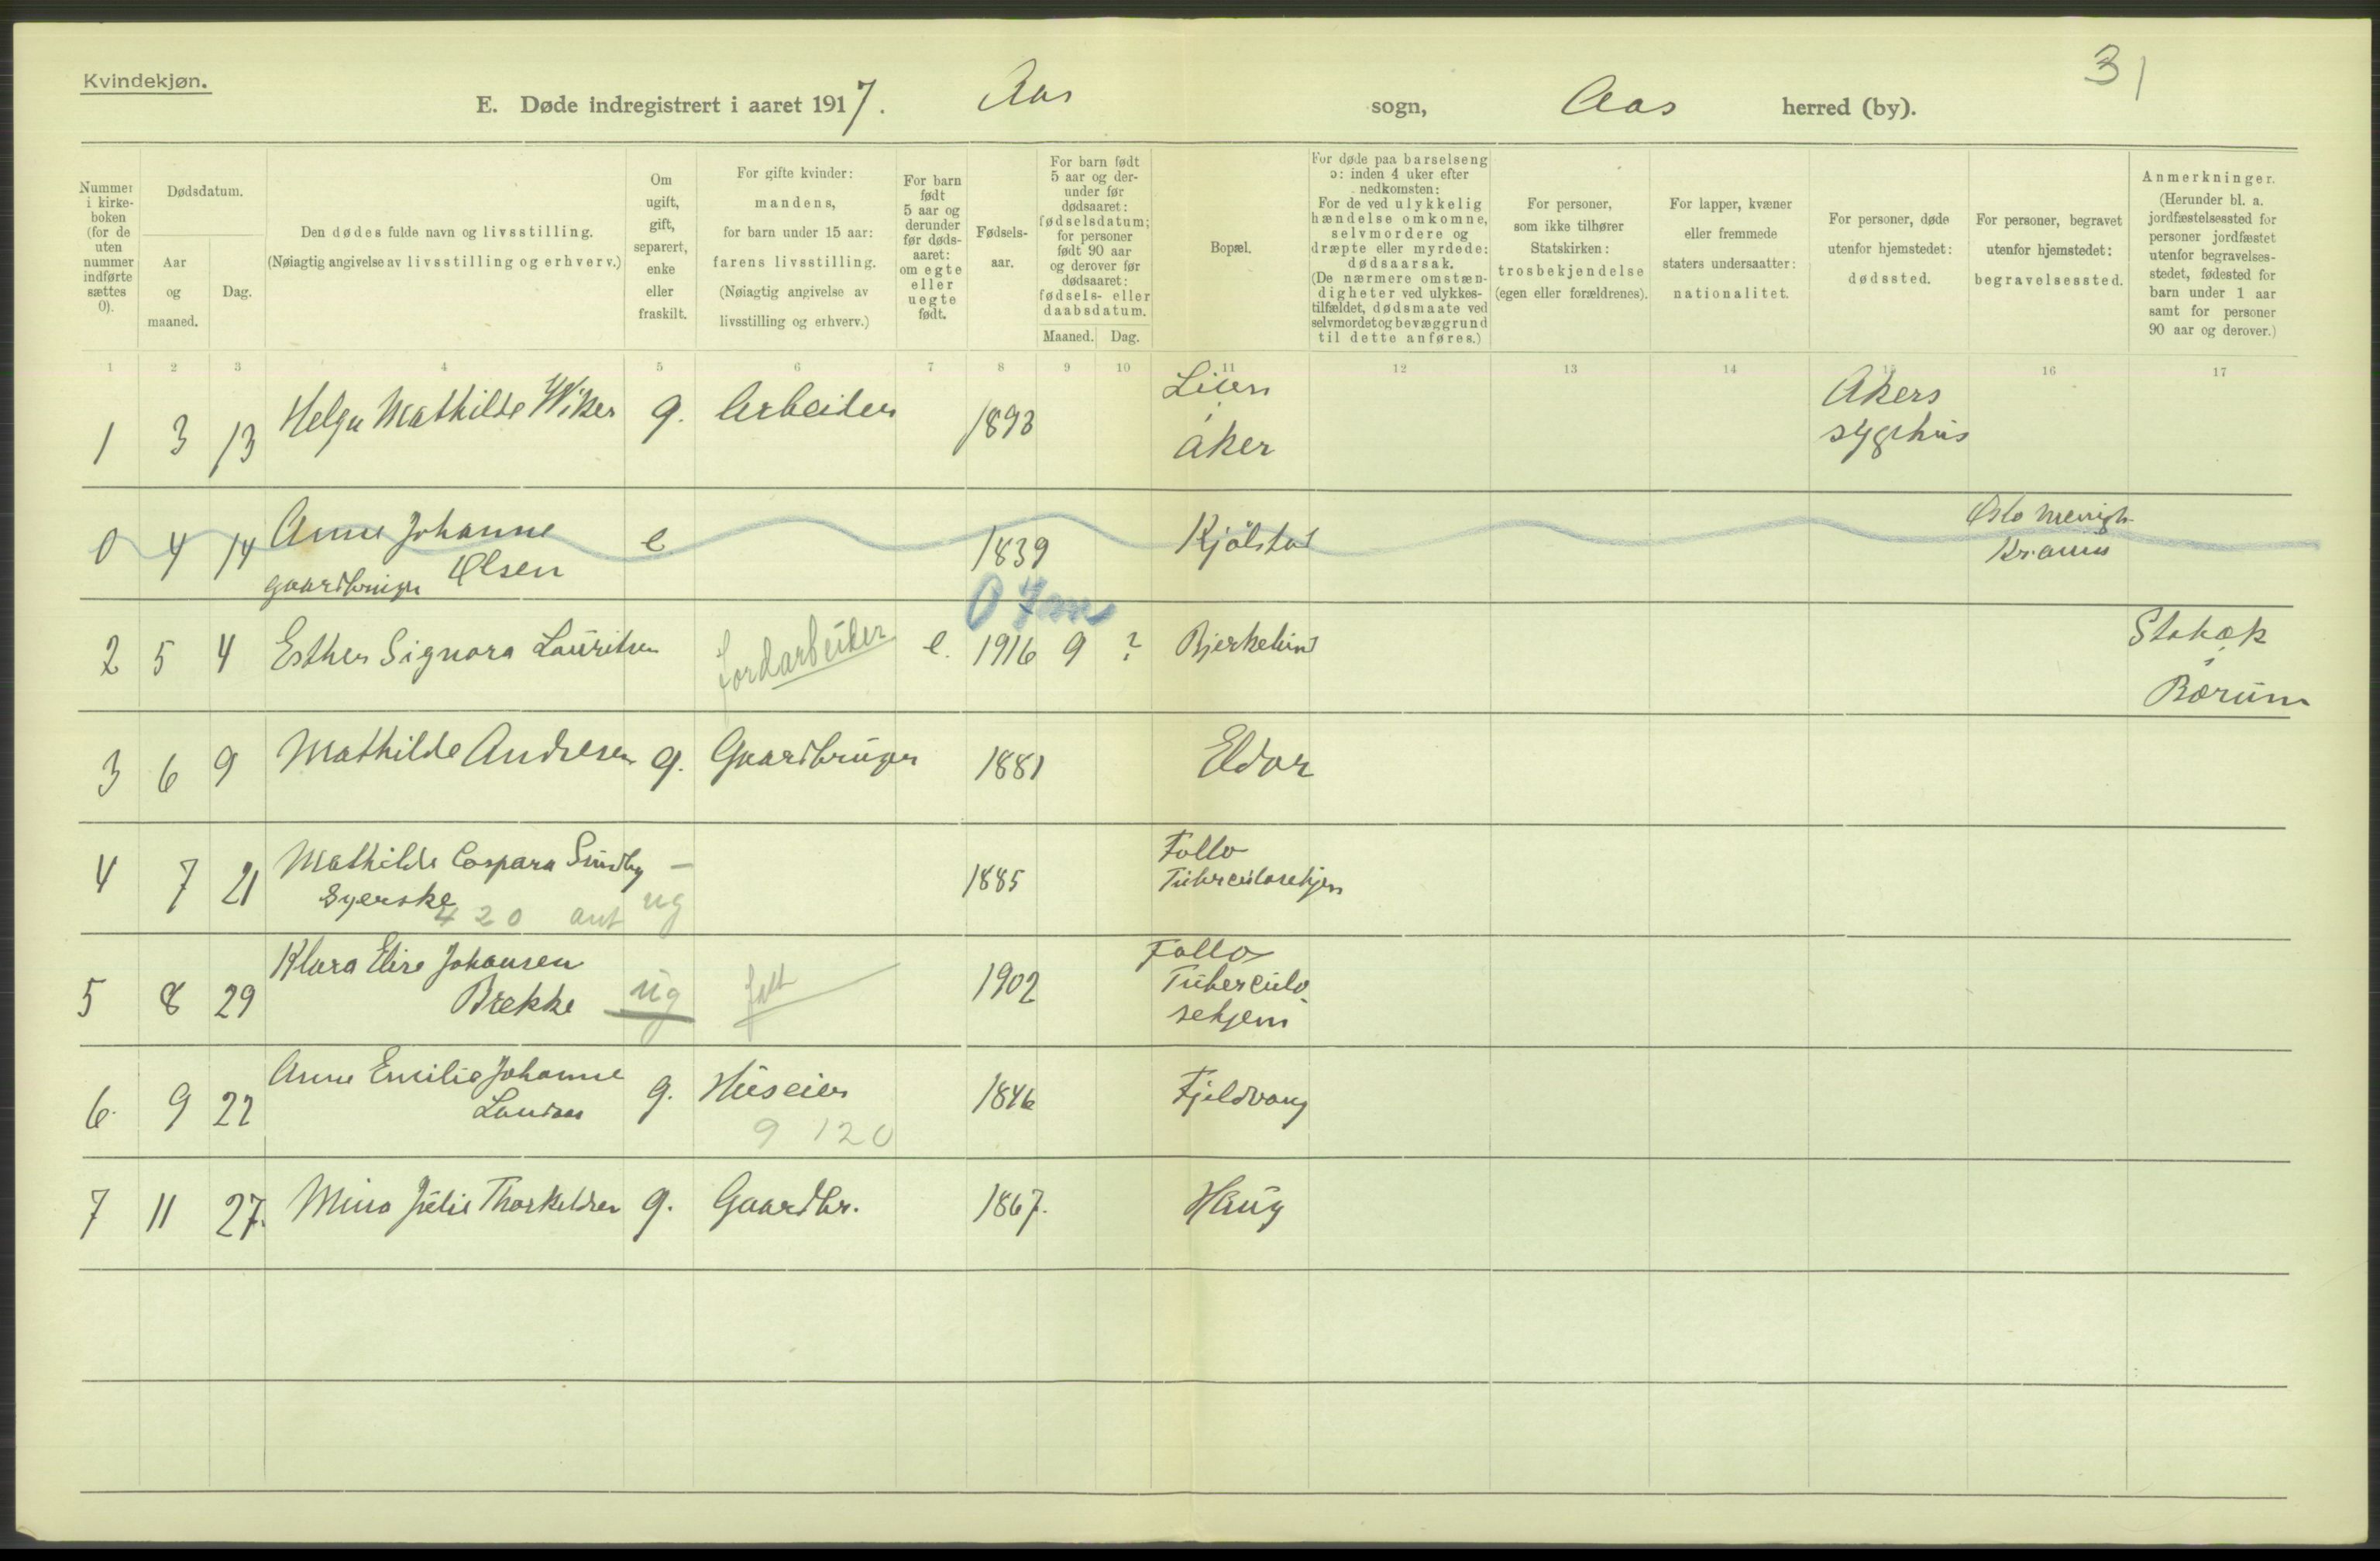 Kvindekjøn.
31
E. Døde indregistrert i aaret 1917. Aas sogn, Aas herred (by).
Nummer i kirkeboken (for de uten nummer indførte sættes 0).
Dødsdatum.
Aar og maaned.
Dag.
Den dødes fulde navn og livsstilling.
(Nøiagtig angivelse av livsstilling og erhverv.)
Om ugift, gift, separert, enke eller fraskilt.
For gifte kvinder: mandens, for barn under 15 aar: farens livsstilling. (Nøiagtig angivelse av livsstilling og erhverv.)
For barn født 5 aar og derunder før dødsaaret: om egte eller uegte født.
Fødselsaar.
For barn født 5 aar og derunder før dødsaaret: fødselsdatum; for personer født 90 aar og derover før dødsaaret: fødsels- eller daabsdatum.
Maaned. Dag.
Bopæl.
For døde paa barselseng ɔ: inden 4 uker efter nedkomsten: For de ved ulykkelig hændelse omkomne, selvmordere og dræpte eller myrdede: dødsaarsak. (De nærmere omstændigheter ved ulykkestilfældet, dødsmaate ved selvmordet og bevæggrund til dette anføres.)
For personer, som ikke tilhører Statskirken: trosbekjendelse (egen eller forældrenes).
For lapper, kvæner eller fremmede staters undersaatter: nationalitet.
For personer, døde utenfor hjemstedet: dødssted.
For personer, begravet utenfor hjemstedet: begravelsessted.
Anmerkninger. (Herunder bl. a. jordfæstelsessted for personer jordfæstet utenfor begravelsesstedet, fødested for barn under 1 aar samt for personer 90 aar og derover.)
1 2 3 4 5 6 7 8 9 10 11 12 13 14 15 16 17
1 3 13 Helga Mathilde Wiker g. Arbeider 1893 Lien i Aker Akers sygehus
0 4 14 Anne Johanne Olsen gaardbruger e 1839 Kjølstad Oslo
2 5 4 Esther Signora Lauritsen jordarbeider e. 1916 9 ? Bjerkelund Stabæk i Bærum
3 6 9 Mathilde Andresen g. Gaardbruger 1881 Eldor
4 7 21 Mathilde Caspara Sundby – Syerske 420 ant ug 1885 Follo Tuberculosehjem
5 8 29 Klara Elise Johansen Brekke ug 1902 Follo Tuberculosehjem
6. 9 22 Anne Emilie Johanne g. Huseier 9 120 1846 Fjeldvang
7 11 27. Mina Julie Thorkildsen g. Gaardbr. 1867. Haug